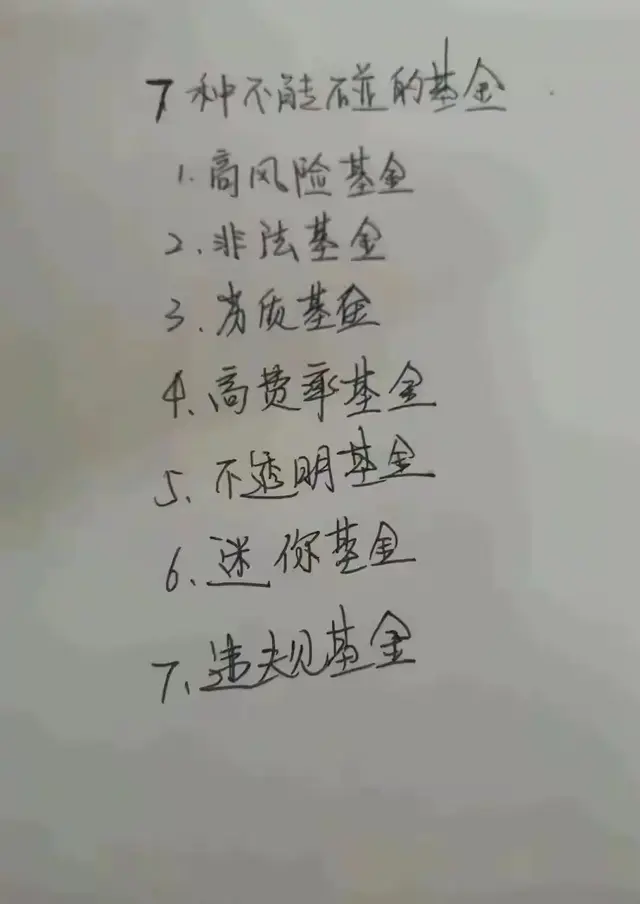 7种不能碰的基金
1.高风险基金
2.非法基金
3.劣质基金
4.高费率基金
5.不透明基金
6.迷你基金
7.违规基金